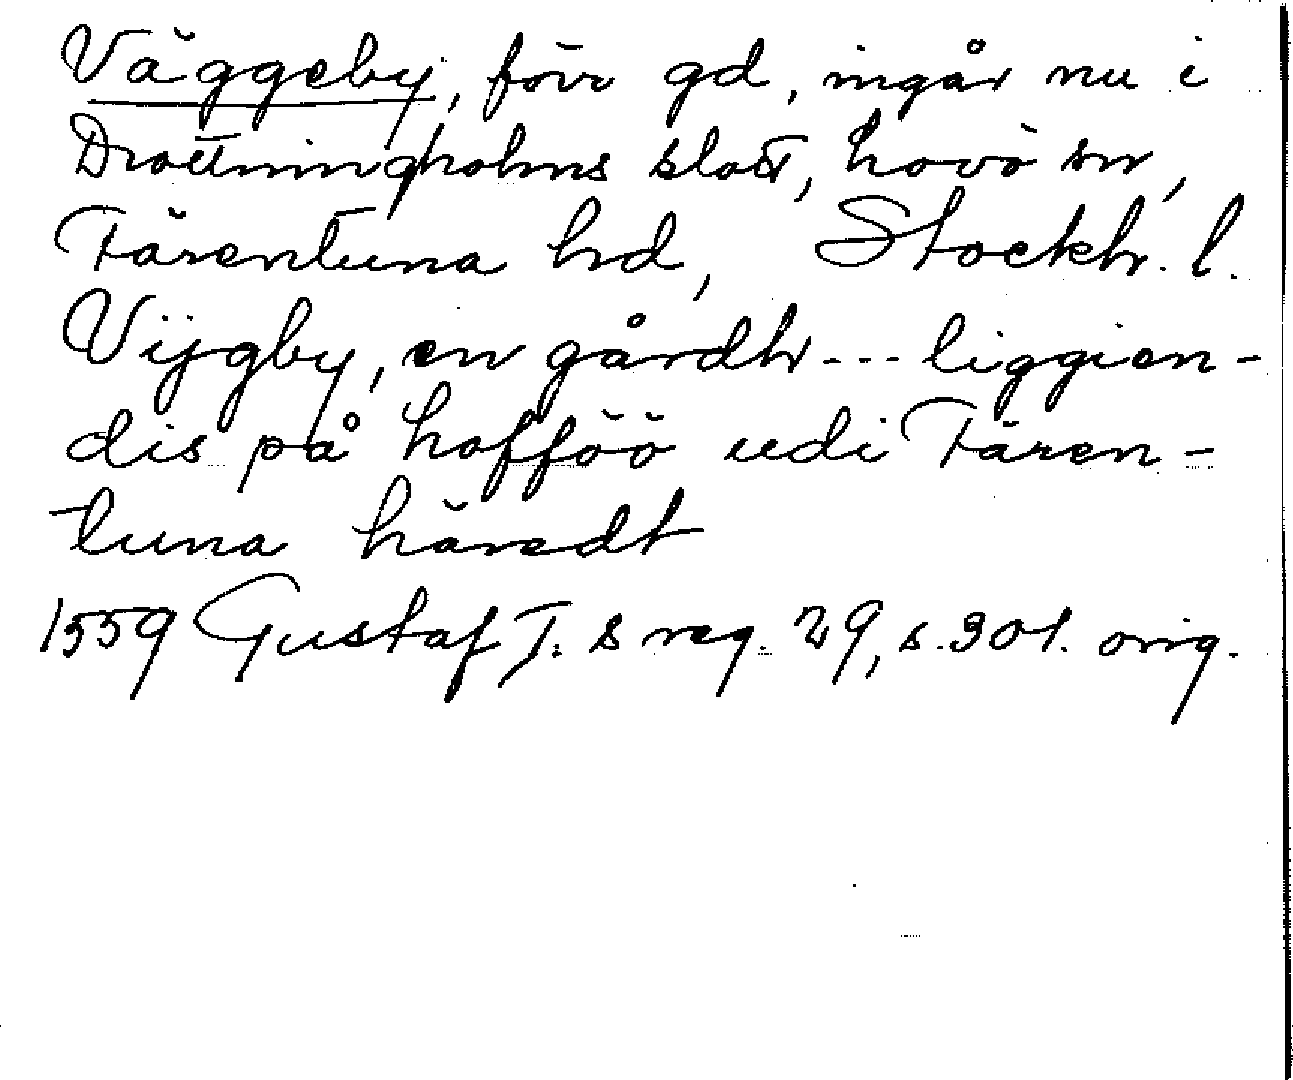 Väggeby, förr gd, ingår nu i
Drottningholms slott, Lovö sn,
Färentuna hd, Stockh. l.
Vijgby, en gårdh --- liggien-
dis på Lofföö udi Fären-
tuna häredt
1559 Gustaf I:s reg. 29, s. 301. orig.